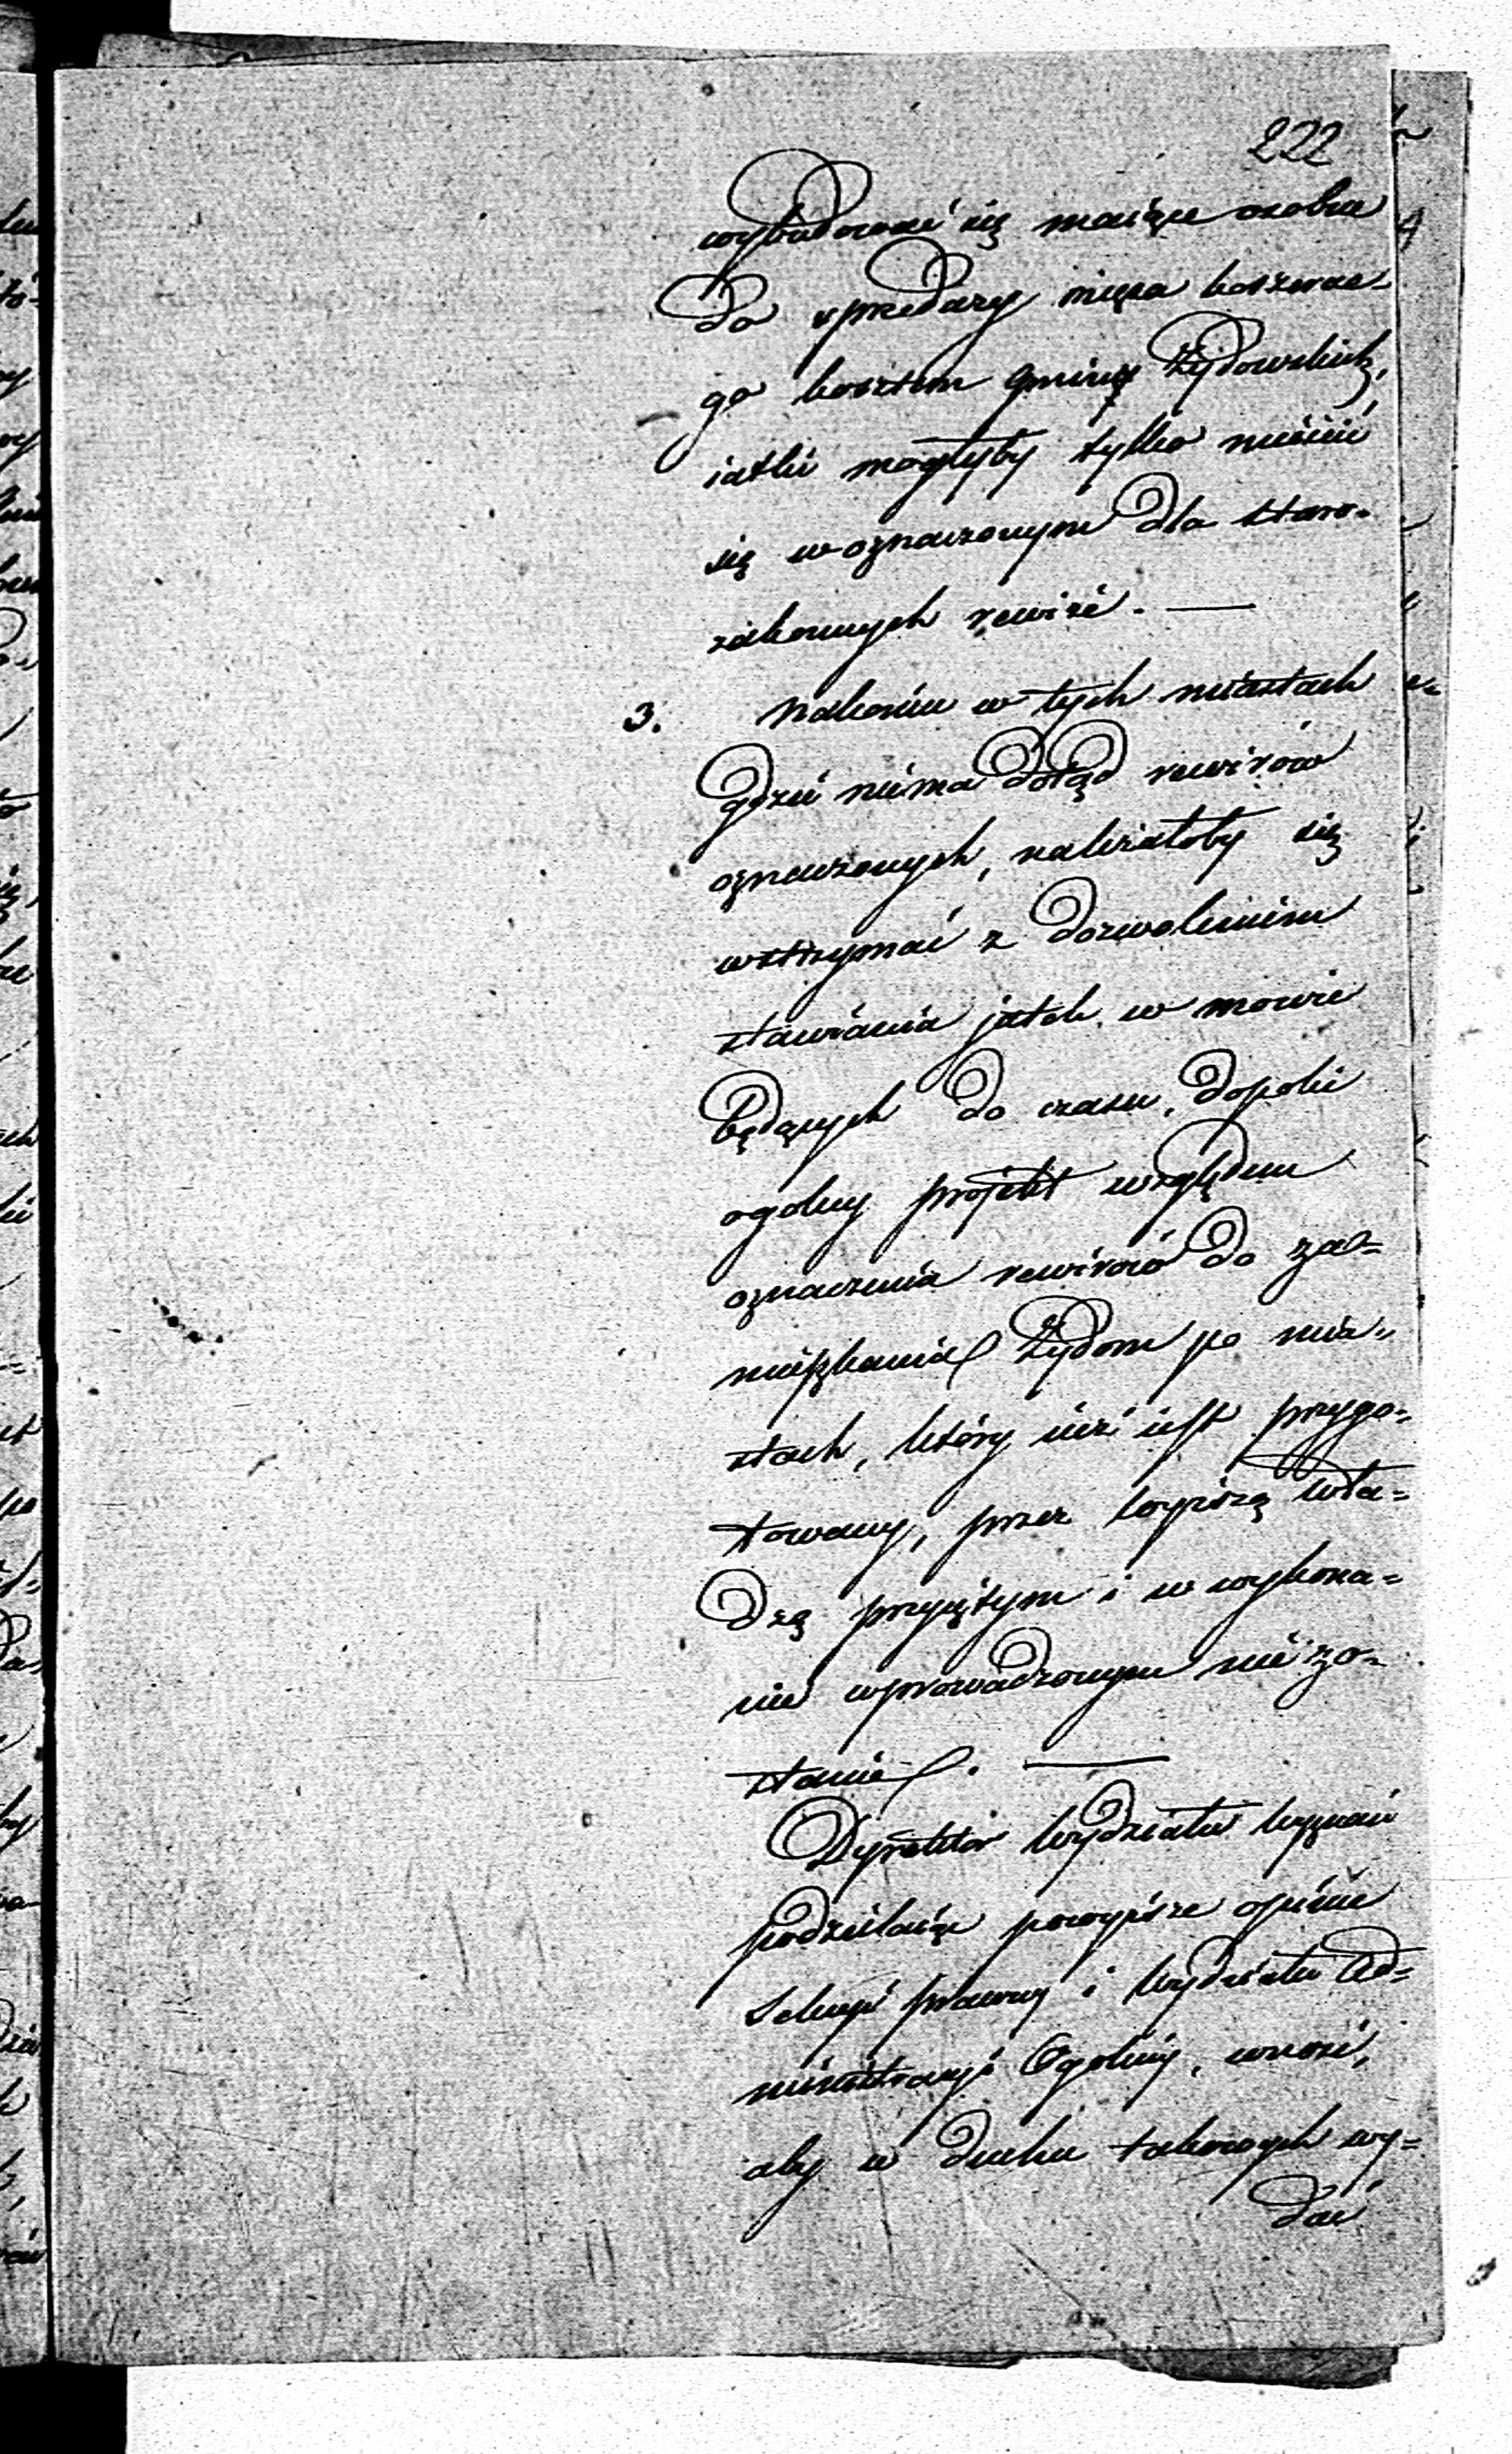 222
wybudować się maiące osobne
do sprzedaży mięsa koszerne-
go kosztem gminy Żydowskich,
iatki mogłyby tylko mieścić
się w oznaczonym dla staro-
zakonnych rewirze. —
3. Nakoniec w tych miastach
gdzie niema dotąd rewirów
oznaczonych, należałoby się
wstrzymać z dozwoleniem
stawiania jatek w mowie
będących do czasu, dopoki
ogolny projekt względem
oznaczenia rewirów do za=
mieszkania Żydom po mia=
stach, który iuż iest przygo=
towany, przez wyższą wła=
dzę przyiętym i w wykona=
nie wprowadzonym nie zo=
stanie. —
Dyrektor Wydziału Wyznań
podzielaiąc powyższe opinie
Sekcyi prawney i Wydziału Ad=
ministracyi Ogolney, wnosi,
aby w duchu takowych wy=
dać